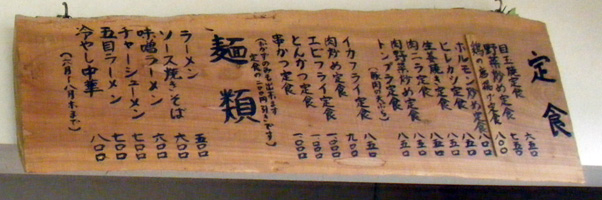 定食
目玉焼定食 六五〇
野菜炒め定食 七五〇
ホルモン炒め定食 八〇〇
ヒレカツ定食 八五〇
生姜焼き定食 八五〇
肉ニラ定食 八五〇
肉野菜炒め定食 八五〇
トンテラ定食 八五〇
イカフライ定食 八五〇
肉炒め定食 九〇〇
エビフライ定食 一〇〇〇
とんかつ定食 一〇〇〇
串かつ定食 一〇〇〇
麺類
ラーメン 五〇〇
ソース焼きそば 六〇〇
味噌ラーメン 六〇〇
チャーシューメン 七〇〇
五目ラーメン 七〇〇
冷やし中華 八〇〇
(六月〜八月末まで)